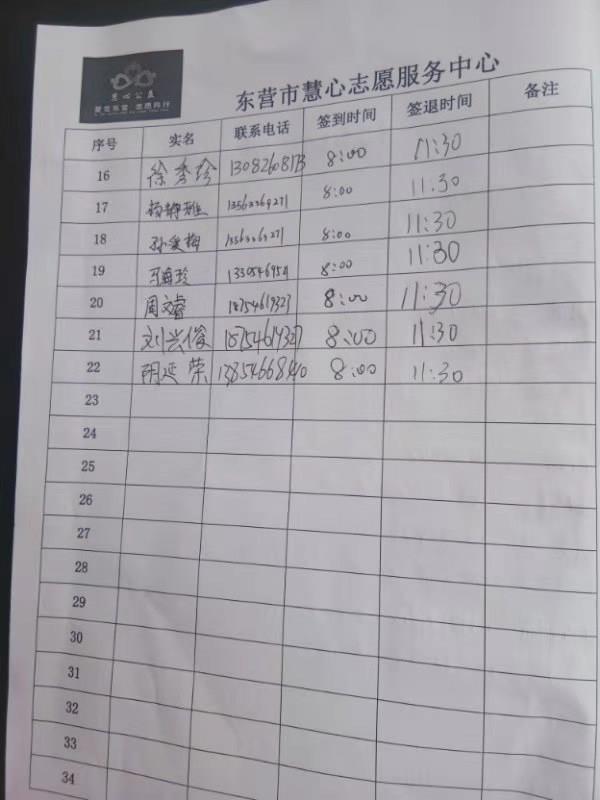 慧心公益
东营市慧心志愿服务中心
序号 实名 联系电话 签到时间 签退时间 备注
16 徐秀珍 8:00 11:30
17 杨静雅 13563369271 8:00 11:30
18 孙爱梅 8:00 11:30
19 8:00 11:30
20 周文睿 18754619327 8:00 11:30
21 刘兴俊 18754619327 8:00 11:30
22 阴延荣 8:00 11:30
23
24
25
26
27
28
29
30
31
32
33
34